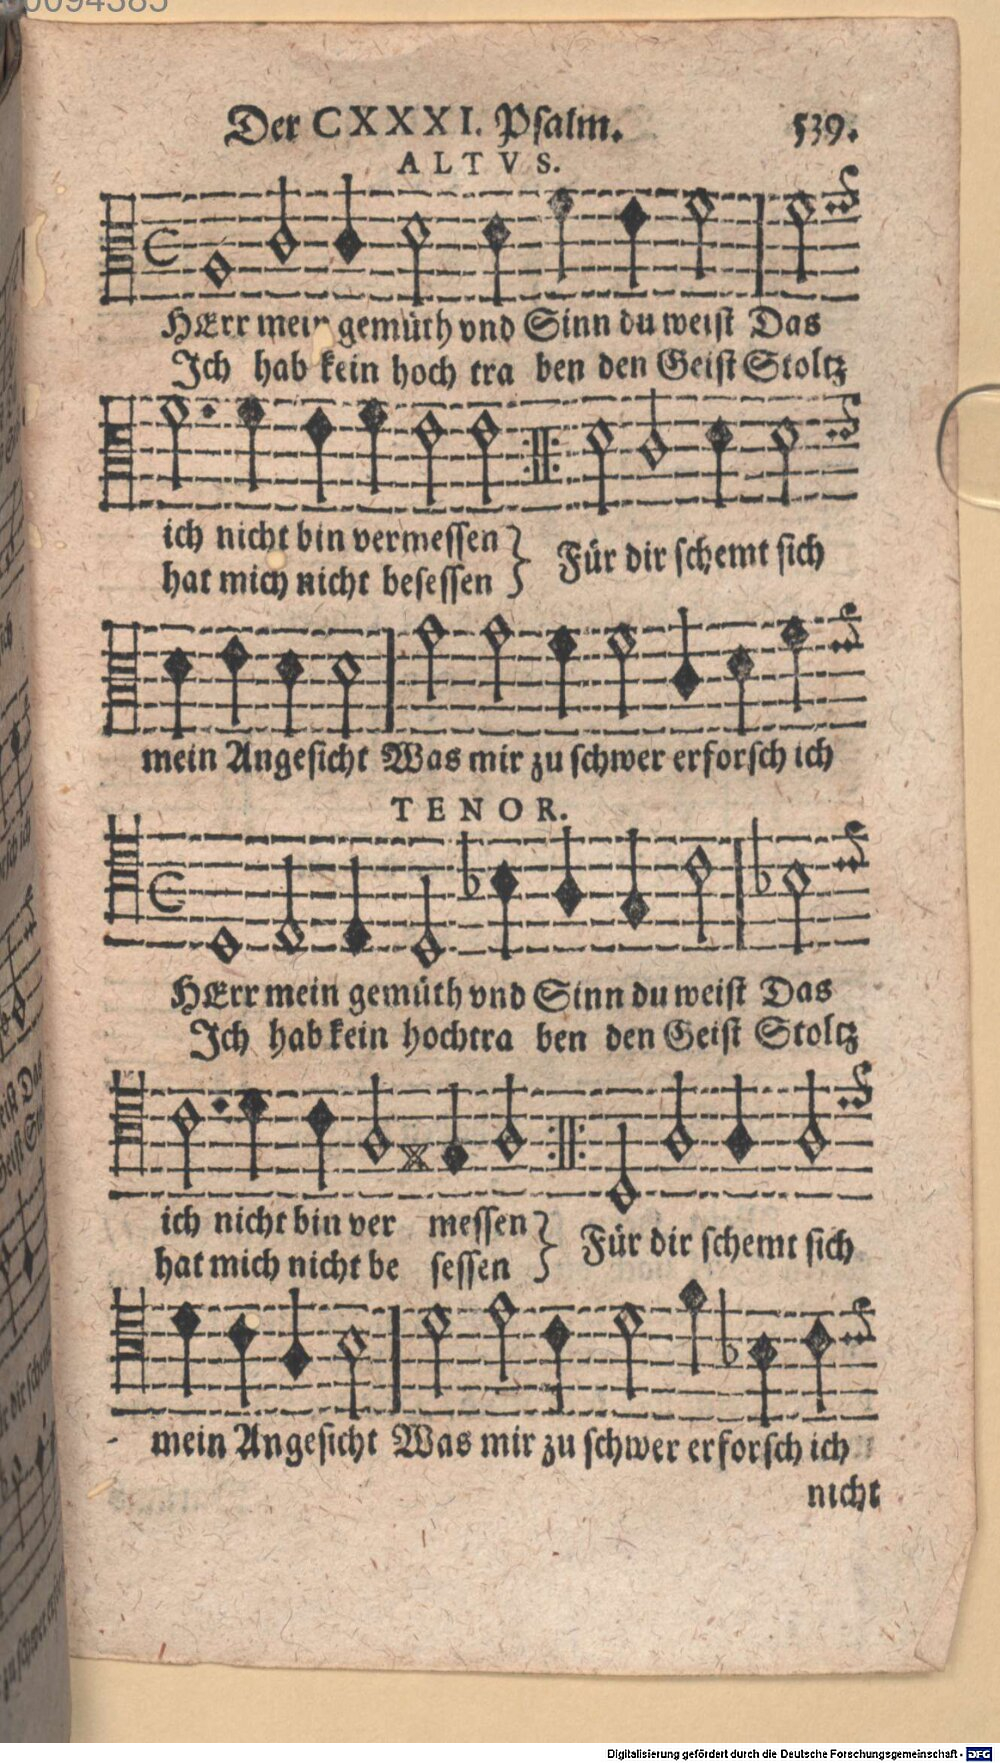 0094385
Der CXXXI. Psalm. 539.
ALTVS.
HErr mein gemüth vnd Sinn du weist Das
Ich hab kein hoch tra ben den Geist Stoltz
ich nicht bin vermessen }
hat mich nicht besessen } Für dir schemt sich
mein Angesicht Was mir zu schwer erforsch ich
TENOR.
HErr mein gemüth vnd Sinn du weist Das
Ich hab kein hochtra ben den Geist Stoltz
ich nicht bin ver messen }
hat mich nicht be sessen } Für dir schemt sich
mein Angesicht Was mir zu schwer erforsch ich
nicht
Digitalisierung gefördert durch die Deutsche Forschungsgemeinschaft - DFG